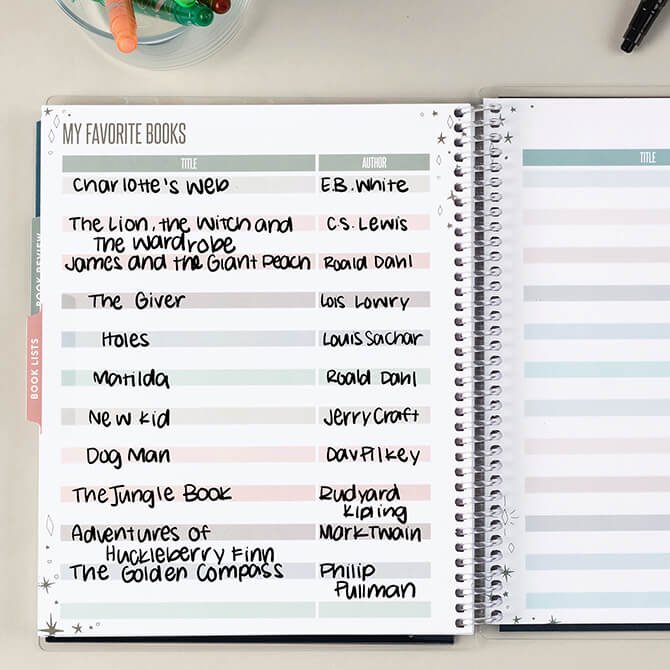 MY FAVORITE BOOKS
TITLE AUTHOR
Charlotte's Web E.B. White
The Lion, the Witch and C.S. Lewis
The Wardrobe
James and the Giant Peach Roald Dahl
The Giver Lois Lowry
Holes Louis Sachar
Matilda Roald Dahl
New Kid Jerry Craft
Dog Man Dav Pilkey
The Jungle Book Rudyard
Kipling
Adventures of Mark Twain
Huckleberry Finn
The Golden Compass Philip
Pullman
BOOK REVIEW
BOOK LISTS
TITLE